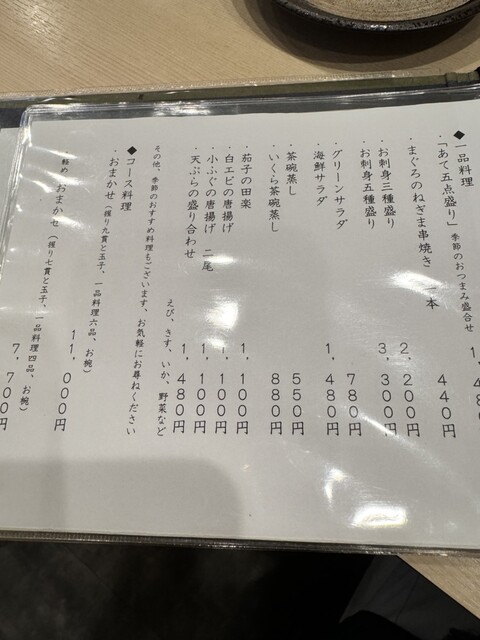 ◆一品料理
・「あて五点盛り」 季節のおつまみ盛合せ 1,480円
・まぐろのねぎま串焼き 一本 440円
・お刺身三種盛り 2,200円
・お刺身五種盛り 3,300円
・グリーンサラダ 780円
・海鮮サラダ 1,480円
・茶碗蒸し 550円
・いくら茶碗蒸し 880円
・茄子の田楽 1,100円
・白エビの唐揚げ 1,100円
・小ふぐの唐揚げ 二尾 1,100円
・天ぷらの盛り合わせ 1,480円
えび、きす、いか、野菜など
その他、季節のおすすめ料理もございます、お気軽にお尋ねください
◆コース料理
・おまかせ(握り九貫と玉子、一品料理六品、お椀)
11,000円
・軽め おまかせ(握り七貫と玉子、一品料理四品、お椀)
7,700円